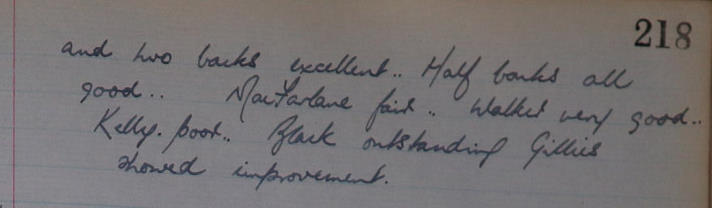 218
and two backs excellent.. Half backs all
good.. MacFarlane fair.. Walker very good..
Kelly. poor.. Black outstanding Gillies
showed improvement.